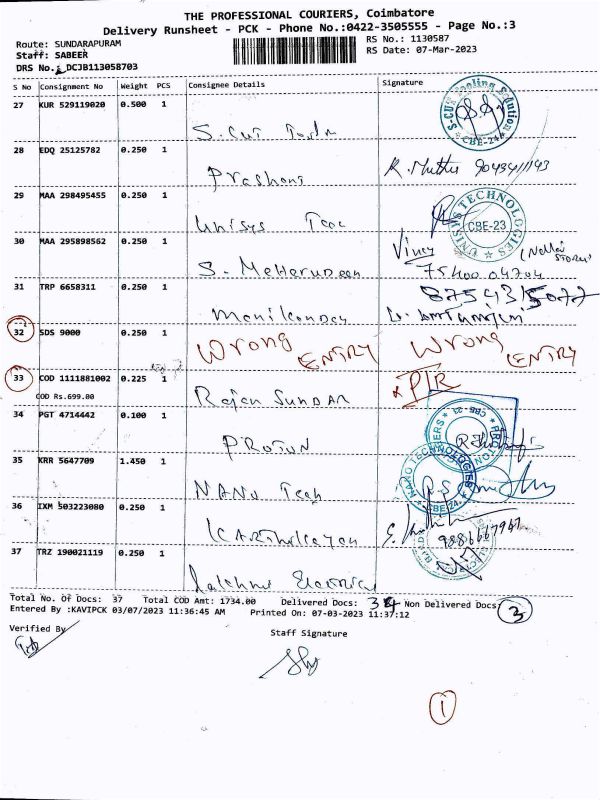 THE PROFESSIONAL COURIERS, Coimbatore
Delivery Runsheet - PCK - Phone No.:0422-3505555 - Page No.:3
Route: SUNDARAPURAM RS No.: 1130587
Staff: SABEER RS Date: 07-Mar-2023
DRS No.: DCJB113058703
S No Consignment No Weight PCS Consignee Details Signature
27 KUR 529119020 0.500 1
S-CUT S-CUT Cooling Solution CBE-24
28 EDQ 25125782 0.250 1
Prashant R. Muthu
29 MAA 298495455 0.250 1
Unisys Tec UNISYS TECHNOLOGIES CBE-23
30 MAA 295898562 0.250 1
S. Meharudeen
31 TRP 6658311 0.250 1 8754315077
Manikandan
32 SDS 9000 0.250 1
Wrong ENTRY Wrong ENTRY
33 COD 1111881002 0.225 1
COD Rs.699.00
Rajan SUNDAR
34 PGT 4714442 0.100 1
PROTON PROTON CBE-21
35 KRR 5647709 1.450 1
NANO Tech NANO TECHNOLOGIES CBE-24
36 IXM 503223080 0.250 1
KARthikeyan
37 TRZ 190021119 0.250 1
Lakshmi Electrical
Total No. Of Docs: 37 Total COD Amt: 1734.00 Delivered Docs: 34 Non Delivered Docs: 3
Entered By :KAVIPCK 03/07/2023 11:36:45 AM Printed On: 07-03-2023 11:37:12
Verified By
Staff Signature
1